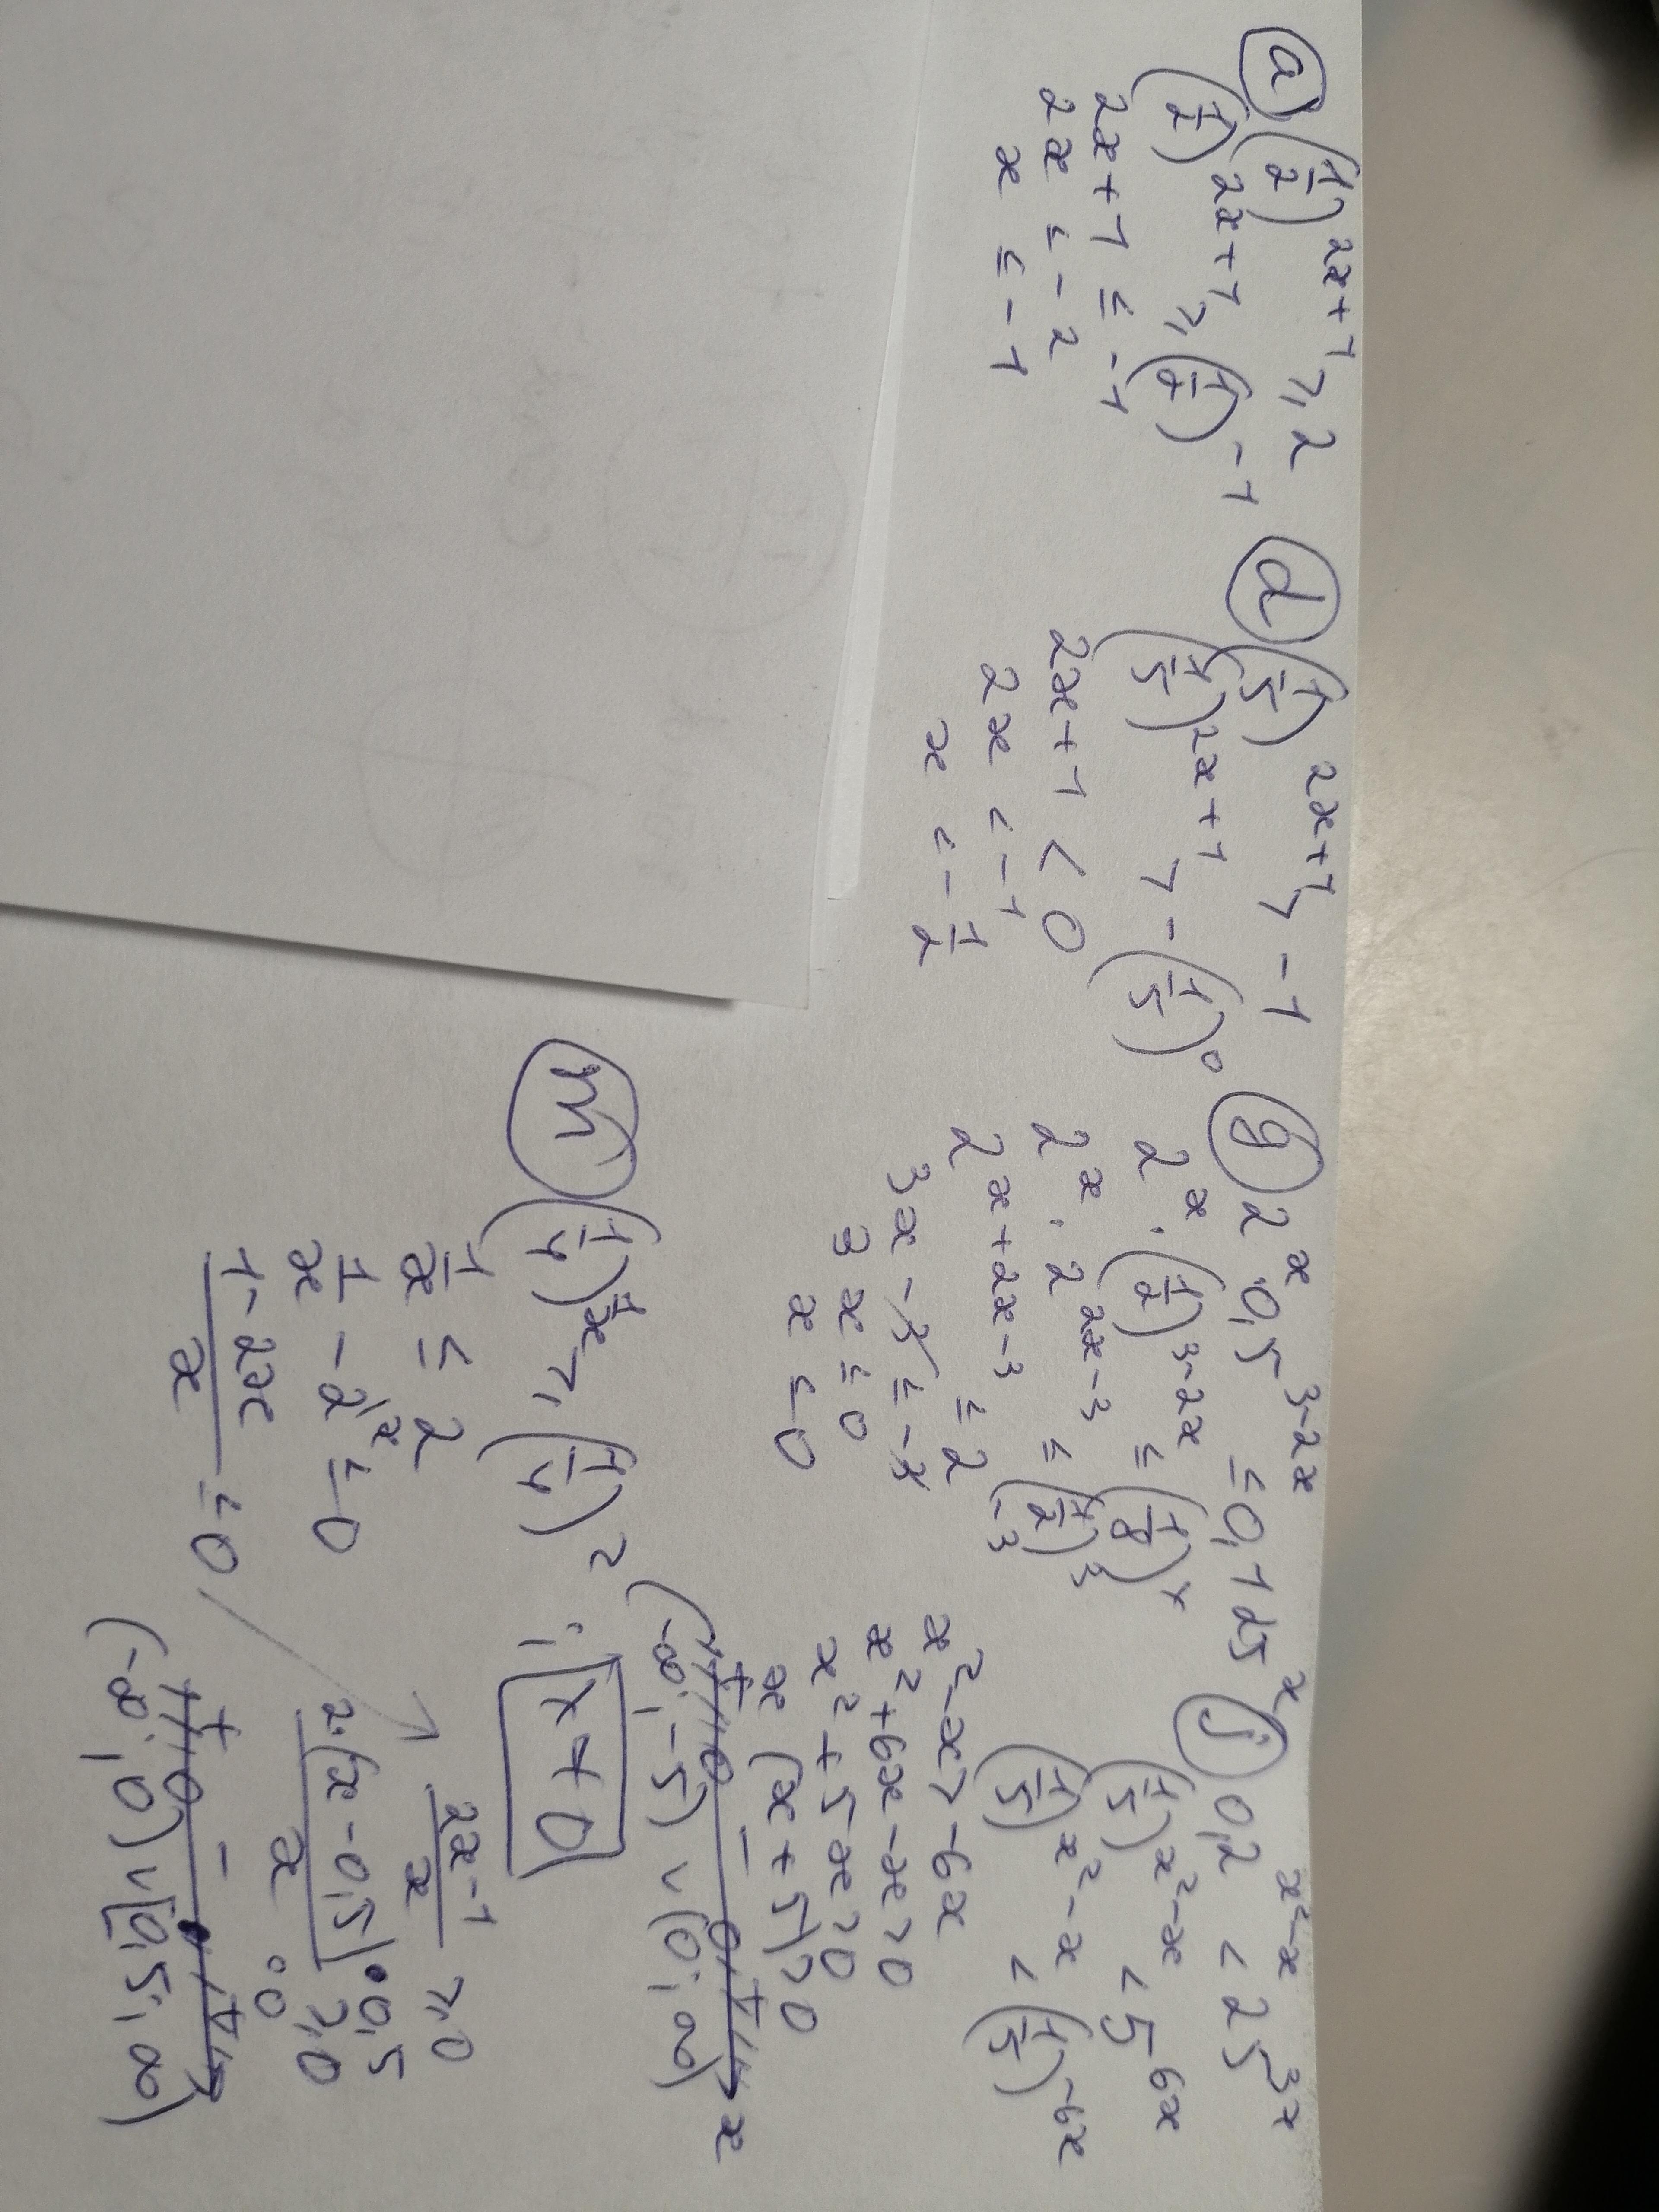 a) (1/2)^(2x+1) ≥ 2
(1/2)^(2x+1) ≥ (1/2)^(-1)
2x+1 ≤ -1
2x ≤ -2
x ≤ -1
d) (1/5)^(2x+1) > -1
(1/5)^(2x+1) > -(1/5)^0
2x+1 < 0
2x < -1
x < -1/2
g) 2^x · 0,5^(3-2x) ≤ 0,125^x
2^x · (1/2)^(3-2x) ≤ (1/8)^x
2^x · 2^(2x-3) ≤ (1/2)^3
2^(x+2x-3) ≤ 2^(-3)
3x - 3 ≤ -3
3x ≤ 0
x ≤ 0
j) 0,2^(x²-x) < 25^(3x)
(1/5)^(x²-x) < 5^(6x)
(1/5)^(x²-x) < (1/5)^(-6x)
x²-x > -6x
x²+6x-x > 0
x²+5x > 0
x(x+5) > 0
+ - + x
(-∞; -5) ∪ (0; ∞)
m) (1/4)^(1/x) ≥ (1/4)^2 ; x ≠ 0
1/x ≤ 2
1/x - 2 ≤ 0
(1-2x)/x ≤ 0
(2x-1)/x ≥ 0
2·(x-0,5)/x ≥ 0
• 0,5
∘ 0
+ - +
(-∞; 0) ∪ [0,5; ∞)